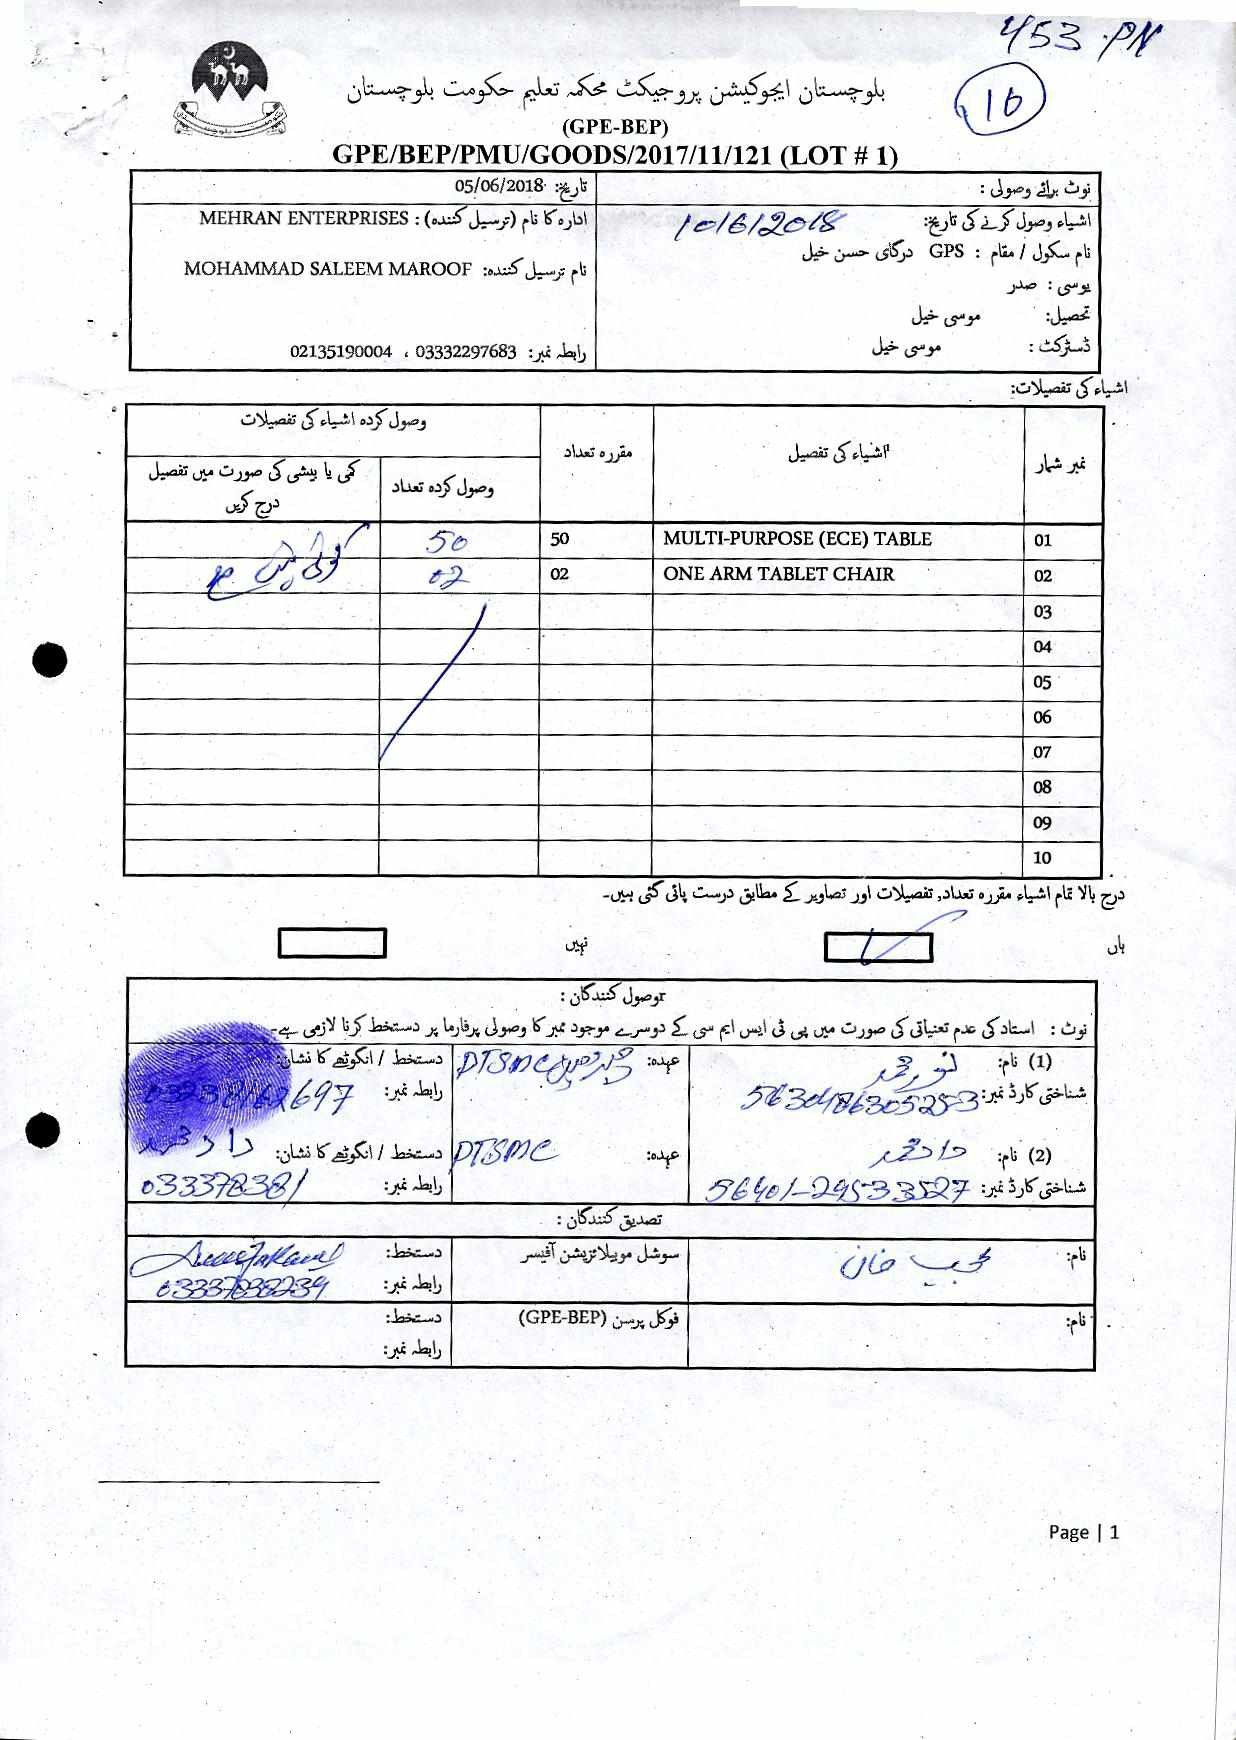 453 PN
16
بلوچستان ایجوکیشن پروجیکٹ محکمہ تعلیم حکومت بلوچستان
(GPE-BEP)
GPE/BEP/PMU/GOODS/2017/11/121 (LOT # 1)
نوٹ برائے وصولی :
تاریخ: 05/06/2018
اشیاء وصول کرنے کی تاریخ: 10/6/2018
ادارہ کا نام (ترسیل کنندہ) : MEHRAN ENTERPRISES
نام سکول / مقام : GPS درگای حسن خیل
نام ترسیل کنندہ: MOHAMMAD SALEEM MAROOF
یوسی : صدر
تحصیل: موسی خیل
ڈسٹرکٹ : موسی خیل
رابطہ نمبر: 03332297683 ، 02135190004
اشیاء کی تفصیلات:
نمبر شمار
اشیاء کی تفصیل
مقررہ تعداد
وصول کردہ اشیاء کی تفصیلات
وصول کردہ تعداد
کمی یا بیشی کی صورت میں تفصیل
درج کریں
01 MULTI-PURPOSE (ECE) TABLE 50 50
02 ONE ARM TABLET CHAIR 02 02
03
04
05
06
07
08
09
10
درج بالا تمام اشیاء مقررہ تعداد, تفصیلات اور تصاویر کے مطابق درست پائی گئی ہیں۔
ہاں
نہیں
وصول کنندگان :
نوٹ : استاد کی عدم تعیناتی کی صورت میں پی ٹی ایس ایم سی کے دوسرے موجود ممبر کا وصولی پرفارما پر دستخط کرنا لازمی ہے۔
(1) نام: نور محمد
عہدہ: PTSMC
دستخط / انگوٹھے کا نشان:
شناختی کارڈ نمبر:
رابطہ نمبر:
(2) نام: داد محمد
عہدہ: PTSMC
دستخط / انگوٹھے کا نشان: داد محمد
شناختی کارڈ نمبر: 56401-29533527
رابطہ نمبر:
تصدیق کنندگان :
نام: محب خان
سوشل موبیلائزیشن آفیسر
دستخط:
رابطہ نمبر:
نام:
فوکل پرسن (GPE-BEP)
دستخط:
رابطہ نمبر:
Page | 1